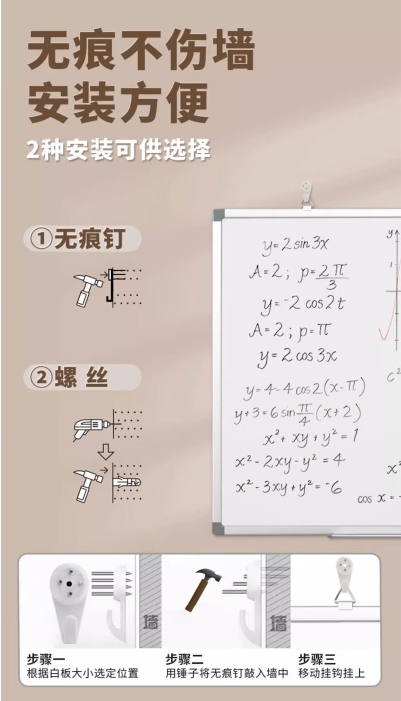 无痕不伤墙
安装方便
2种安装可供选择
①无痕钉
②螺丝
y=2 sin 3x
A=2; p=2π/3
y=-2 cos 2t
A=2; p=π
y=2 cos 3x
y=4-4 cos 2(x-π)
y+3=6 sin π/4 (x+2)
x²+xy+y²=1
x²-2xy-y²=4
x²-3xy+y²=-6
y
1
c²
x²
cos x=-
墙
墙
步骤一
根据白板大小选定位置
步骤二
用锤子将无痕钉敲入墙中
步骤三
移动挂钩挂上